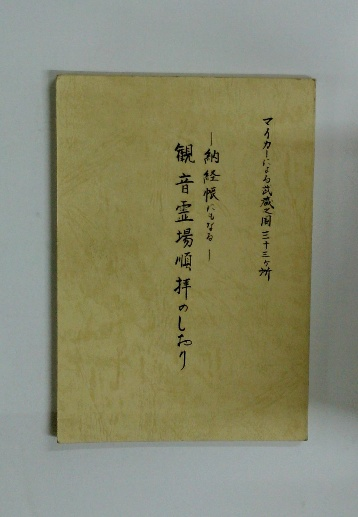 マイカーによる武蔵之国三十三ヶ所
―納経帳にもなる―
観音霊場順拝のしおり